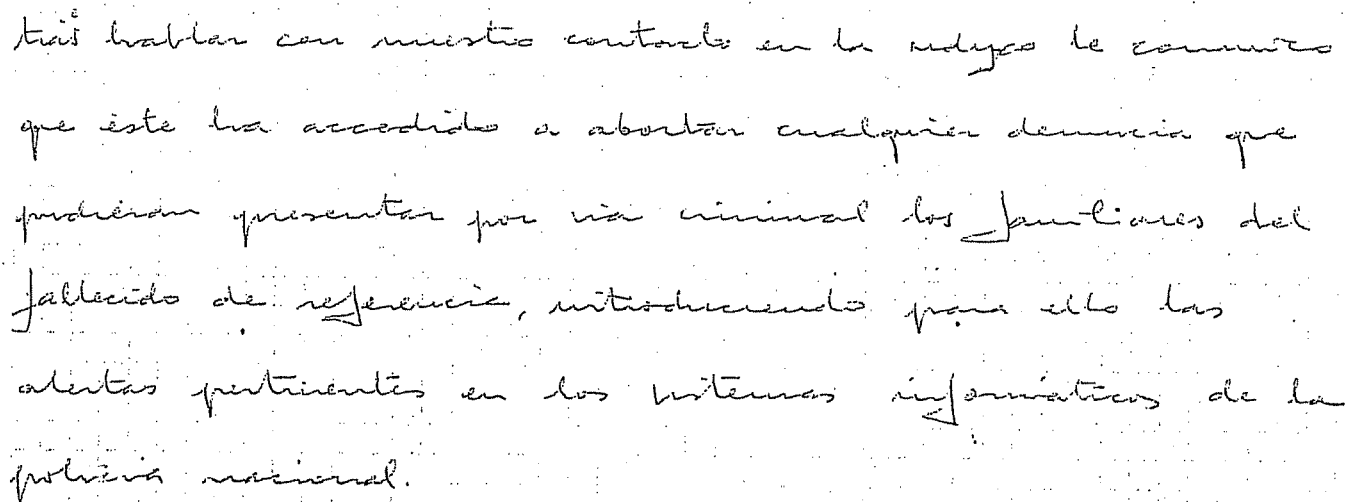 tras hablar con nuestro contacto en la udyco le comunico
que éste ha accedido a abortar cualquier denuncia que
pudieran presentar por vía criminal los familiares del
fallecido de referencia, introduciendo para ello las
alertas pertinentes en los sistemas informáticos de la
policía nacional.